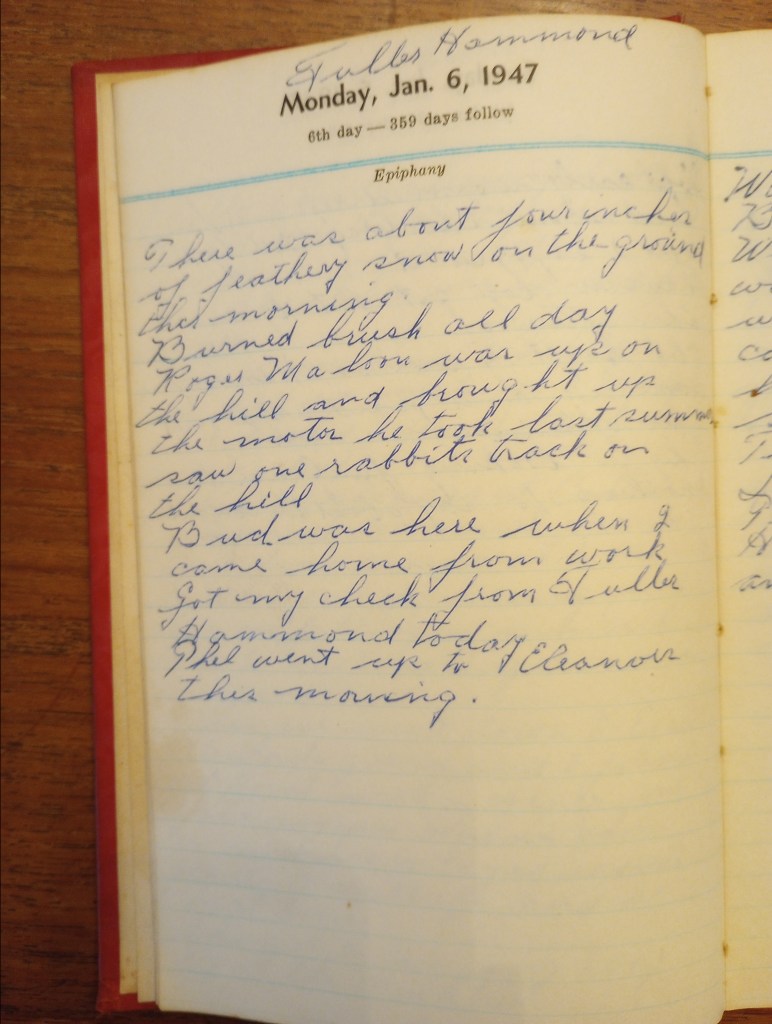 Fuller Hammond
Monday, Jan. 6, 1947
6th day — 359 days follow
Epiphany
There was about four inches
of feathery snow on the ground
this morning.
Burned brush all day
Roger Maloon was up on
the hill and brought up
the motor he took last summer
saw one rabbits track on
the hill
Bud was here when I
came home from work
Got my check from Fuller
Hammond today
Phil went up to Eleanors
this morning.